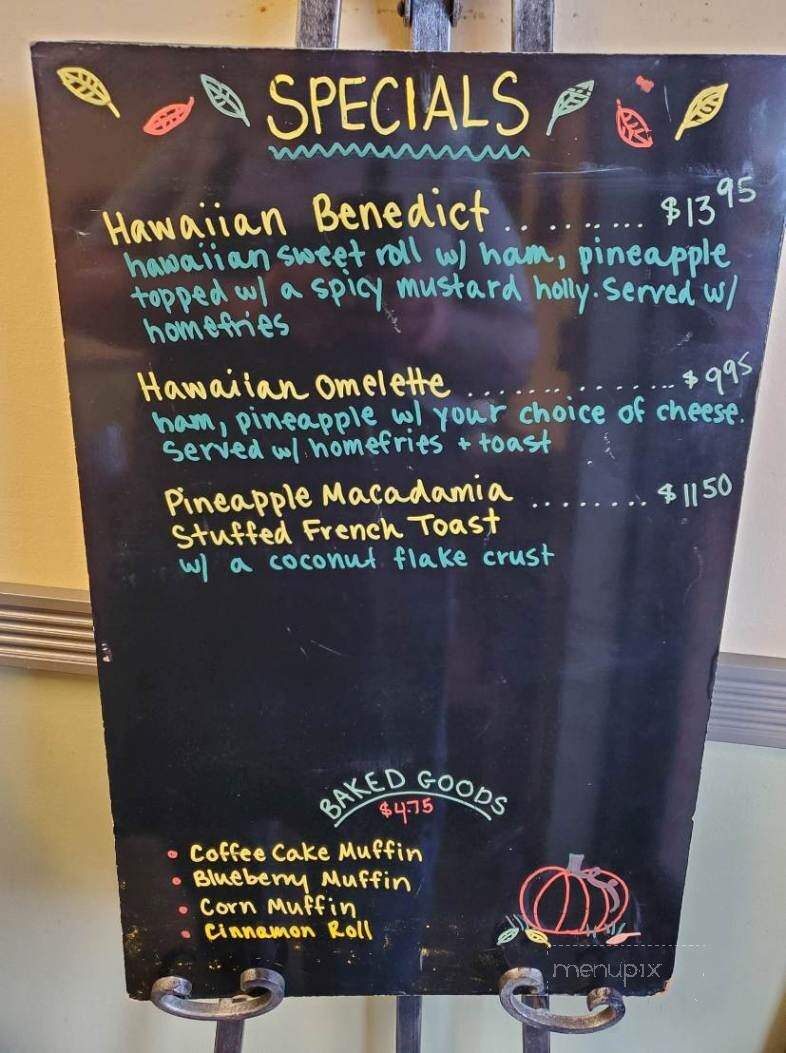 SPECIALS
Hawaiian Benedict .......... $13 95
hawaiian sweet roll w/ ham, pineapple
topped w/ a spicy mustard holly. Served w/
homefries
Hawaiian Omelette ................ $9 95
ham, pineapple w/ your choice of cheese.
Served w/ homefries + toast
Pineapple Macadamia ........ $11 50
Stuffed French Toast
w/ a coconut flake crust
BAKED GOODS
$4.75
• Coffee Cake Muffin
• Blueberry Muffin
• Corn Muffin
• Cinnamon Roll
menupix